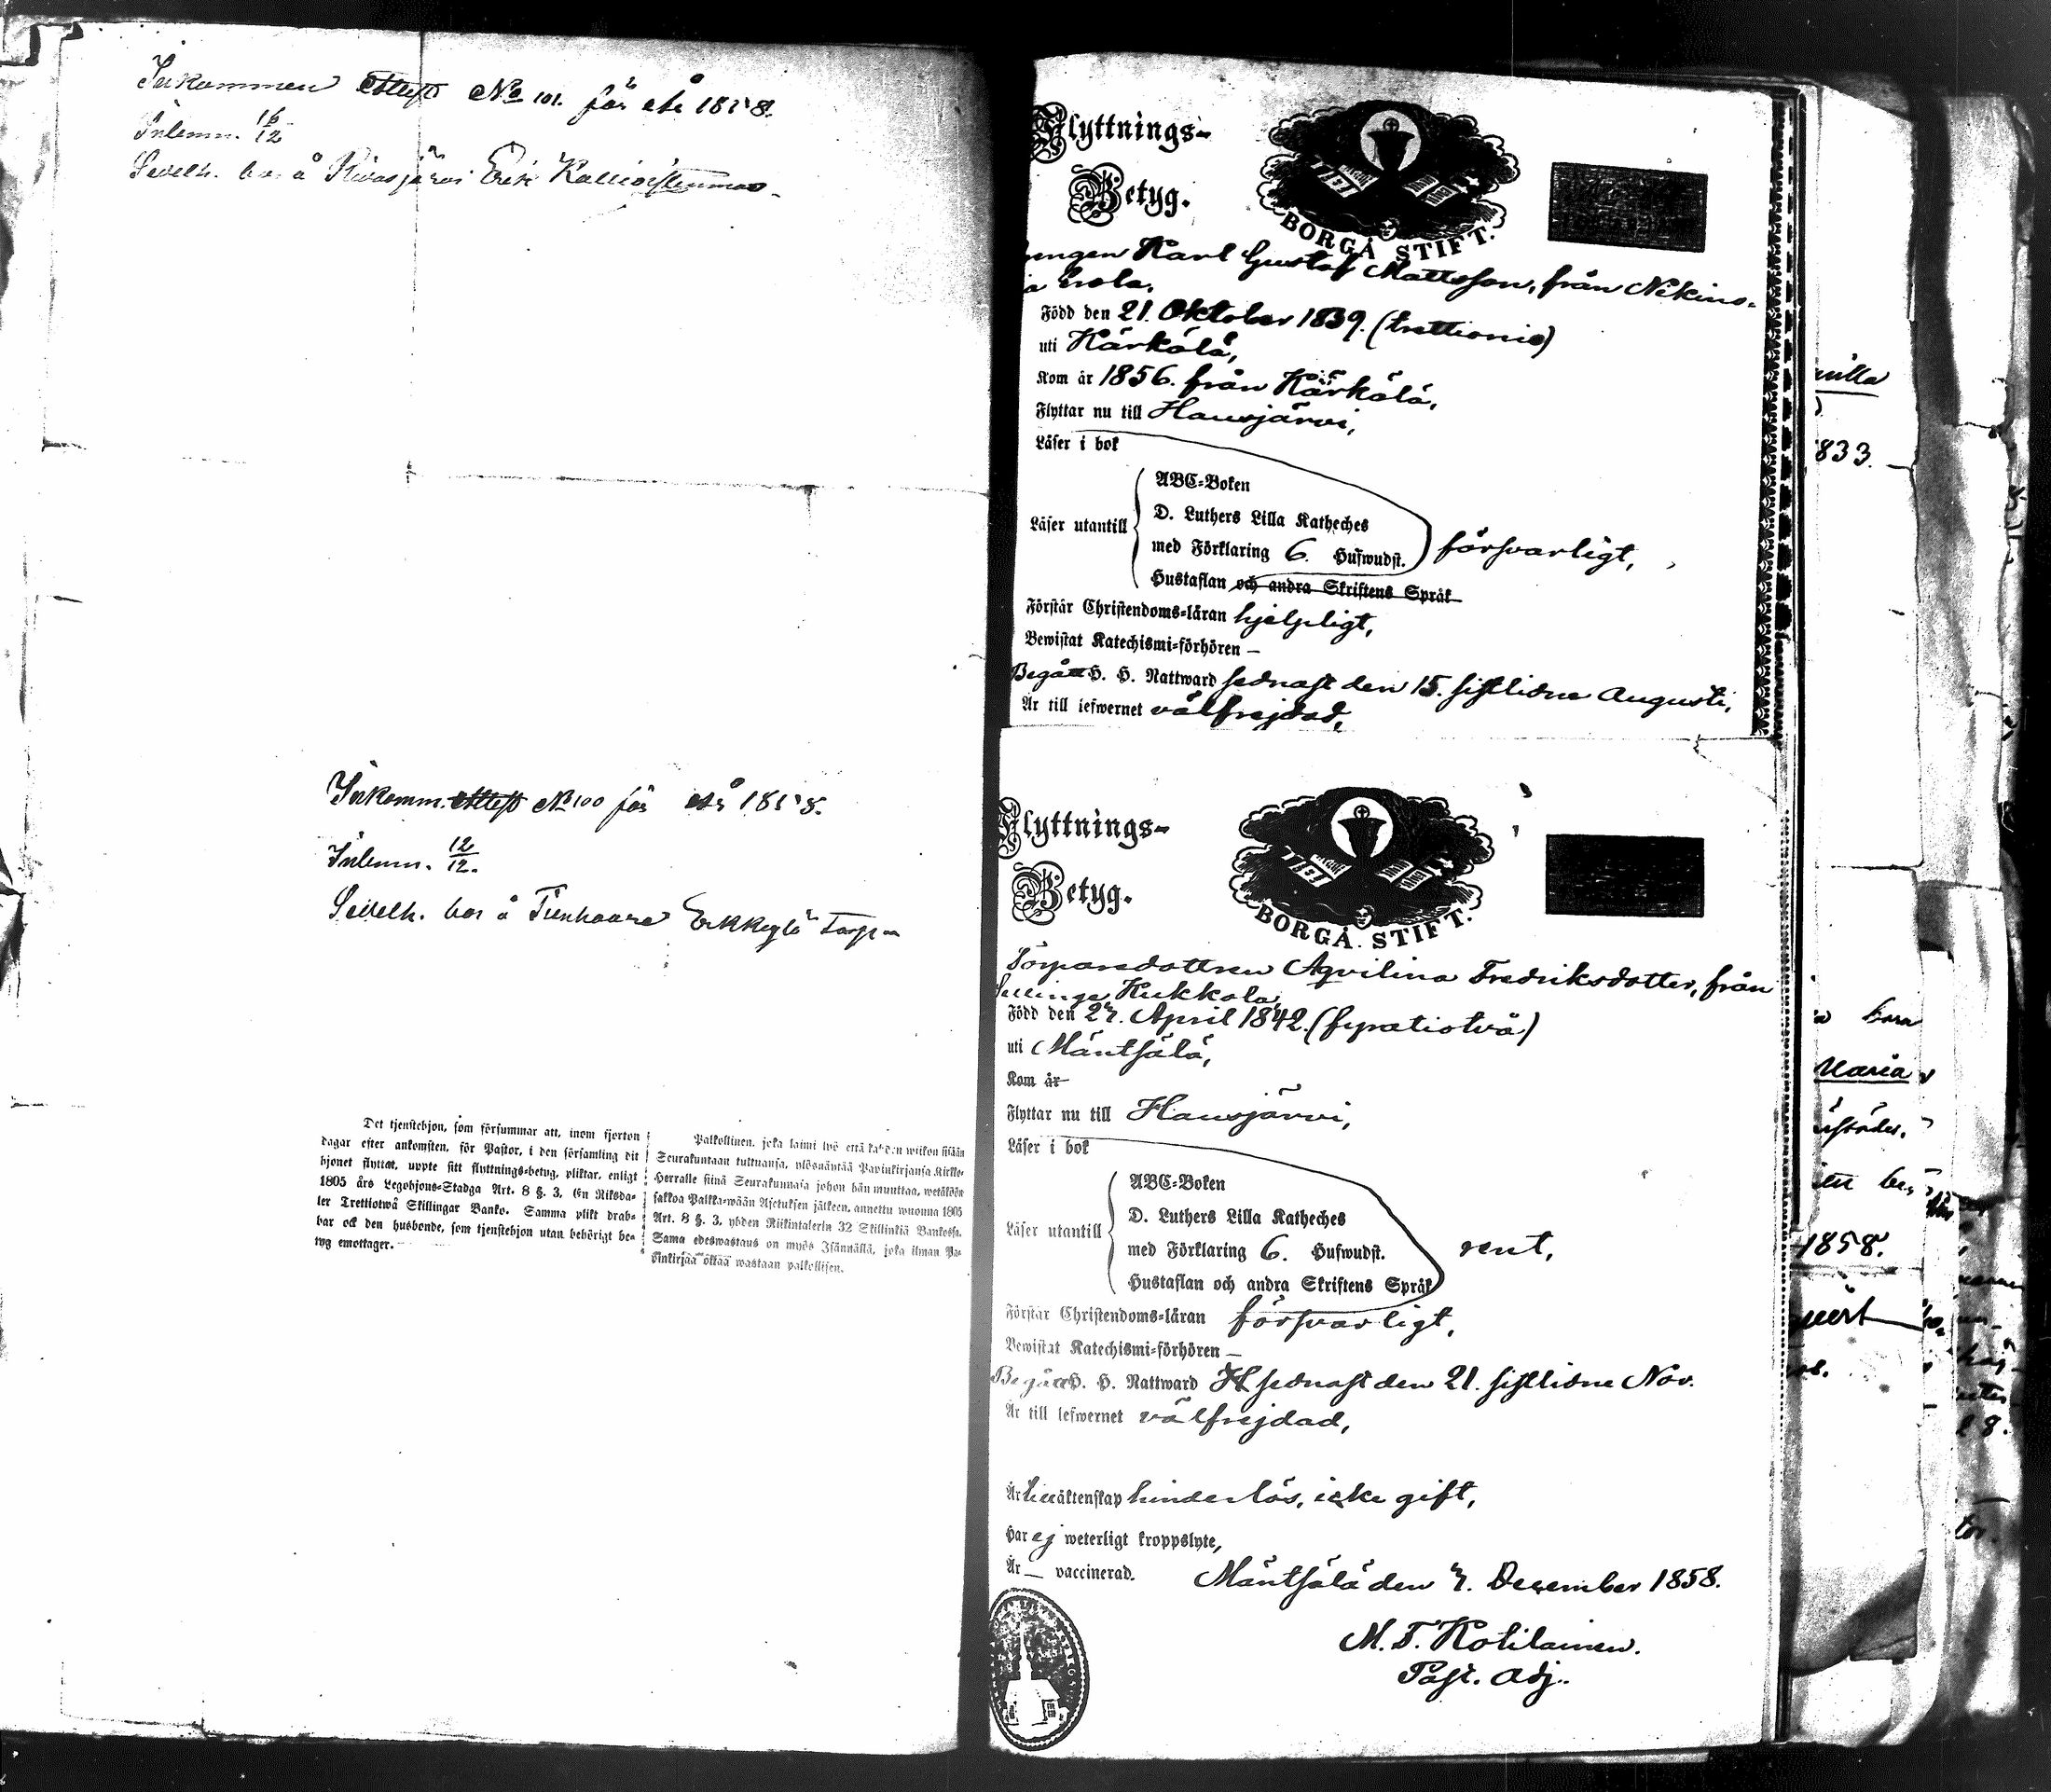 Inkommen Attest No 101. för År 1858.
Inlemn. 16/12
Sedelh. bor å Rivasjärvi Erik
Inkomm. Attest No 100 för År 1858.
Inlemn. 12/12.
Sedelh. bor å Erkkylä Torp
Det tjenstehjon, som försummar att, inom fjorton
dagar efter ankomsten, för Pastor, i den församling dit
hjonet flyttat, uppte sitt flyttnings-betyg, pliktar, enligt
1805 års Legohjons-Stadga Art. 8 §. 3, En Riksda-
ler Trettiotwå Skillingar Banko. Samma plikt drab-
bar ock den husbonde, som tjenstehjon utan behörigt be-
tyg emottager.
Palkollinen, joka laimi lyö että kahden wiikon sisään
Seurakuntaan tultuansa, ylösnäyttää Papinkirjansa Kirkko-
Herralle siinä Seurakunnasa johon hän muuttaa, wetäköön
sakkoa Palkka-wään Asetuksen jälkeen, annettu wuonna 1805
Art. 8 §. 3, yhden Riikintalerin 32 Skillinkiä Bankossa.
Sama edeswastaus on myös Isännällä, joka ilman Pa-
pinkirjaa ottaa wastaan palkollisen.
Flyttnings-
Betyg.
BORGÅ STIFT.
Karl Gustaf Mattsson, från
Född den 21. Oktober 1839. (trettionio)
uti Kärkölä,
Kom år 1856. från Kärkölä,
Flyttar nu till Hausjärvi,
Läser i bok
ABC-Boken
Läser utantill
D. Luthers Lilla Katheches
med Förklaring 6. Hufwudst.
försvarligt,
Hustaflan och andra Skriftens Språk
Förstår Christendoms-läran hjelpligt,
Bewistat Katechismi-förhören —
Begått H. H. Nattward sednast den 15. sistlidne Augusti,
Är till lefwernet välfrejdad,
Flyttnings-
Betyg.
BORGÅ STIFT.
Torparedottren Aqvilina Fredriksdotter, från
Kukkola,
Född den 27. April 1842. (fyratiotvå)
uti Mäntsälä,
Kom år
Flyttar nu till Hausjärvi,
Läser i bok
ABC-Boken
Läser utantill
D. Luthers Lilla Katheches
med Förklaring 6. Hufwudst.
rent,
Hustaflan och andra Skriftens Språk
Förstår Christendoms-läran försvarligt,
Bewistat Katechismi-förhören —
Begått H. H. Nattward sednast den 21. sistlidne Nov.
Är till lefwernet välfrejdad,
Är till äktenskap hinderlös, icke gift,
Har ej weterligt kroppslyte,
Är — vaccinerad.
Mäntsälä den 7. December 1858.
M. T. Kotilainen.
Past. Adj.
1833.
Maria
1858.